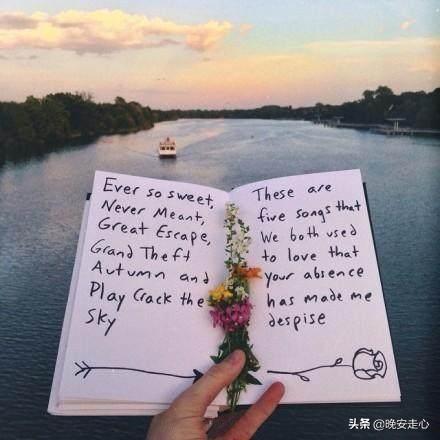 Ever so sweet,
Never Meant,
Great Escape,
Grand Theft
Autumn and
Play Crack the
Sky
These are
five songs that
We both used
to love that
your absence
has made me
despise
头条 @晚安走心